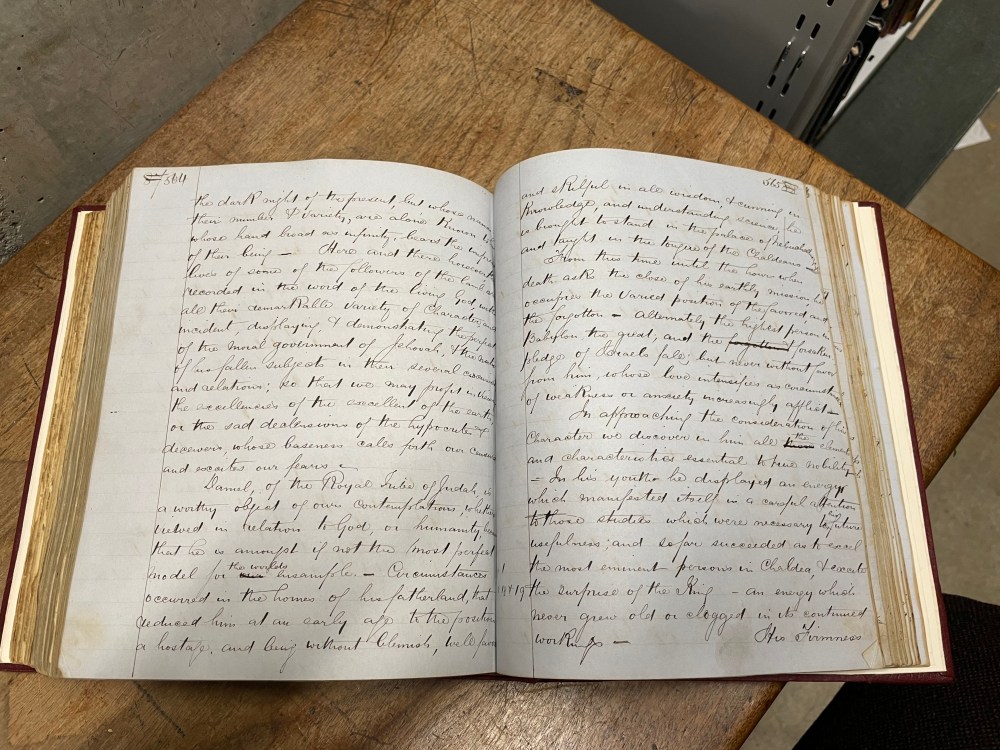 564
the dark night of the present, but whose names
their number & variety, are alone known to
whose hand bread as infinity, bears the
of their being — Here and there
lives of some of the followers of the
recorded in the word of the living God with
all their remarkable variety of Character and
incident, displaying, & demonstrating the perfect
of the moral government of Jehovah, & the
of his fallen subjects in their several
and relations; so that we may profit
the excellencies of the excellent of the earth,
or the sad delensions of the hypocrite
deceivers, whose baseness calls forth our
and excites our fears
Daniel, of the Royal Tribe of Judah, is
a worthy object of our Contemplations, whether
viewed in relation to God, or humanity,
that he is amongst if not the most perfect
model for the worlds ensample. — Circumstances
occurred in the homes of his fatherland, that
reduced him at an early age to the position
a hostage, and being without blemish, well
565
and skilful in all wisdom & cunning in
Knowledge, and understanding science, he
is brought to stand in the palace of
and taught in the tongue of the Chaldeans
From this time until the hour when
death asks the close of his earthly mission, he
occupies the varied position of the favored and
the forgotten — Alternately the highest person in
Babylon the great, and the forsaken
pledge of Israels fale; but never without
from him, whose love intensifies as
of weakness or anxiety increasingly afflict —
In approaching the consideration of his
Character we discover in him all the
and characteristics essential to true nobility
= In his youth he displayed an energy
which manifested itself in a careful attention
to those studies which were necessary to his future
usefulness; and so far succeeded as to excel
the most eminent persons in Chaldea, & excite
1
19 & 19 the surprise of the King — an energy which
never grew old or clogged in its continued
workings — His Firmness